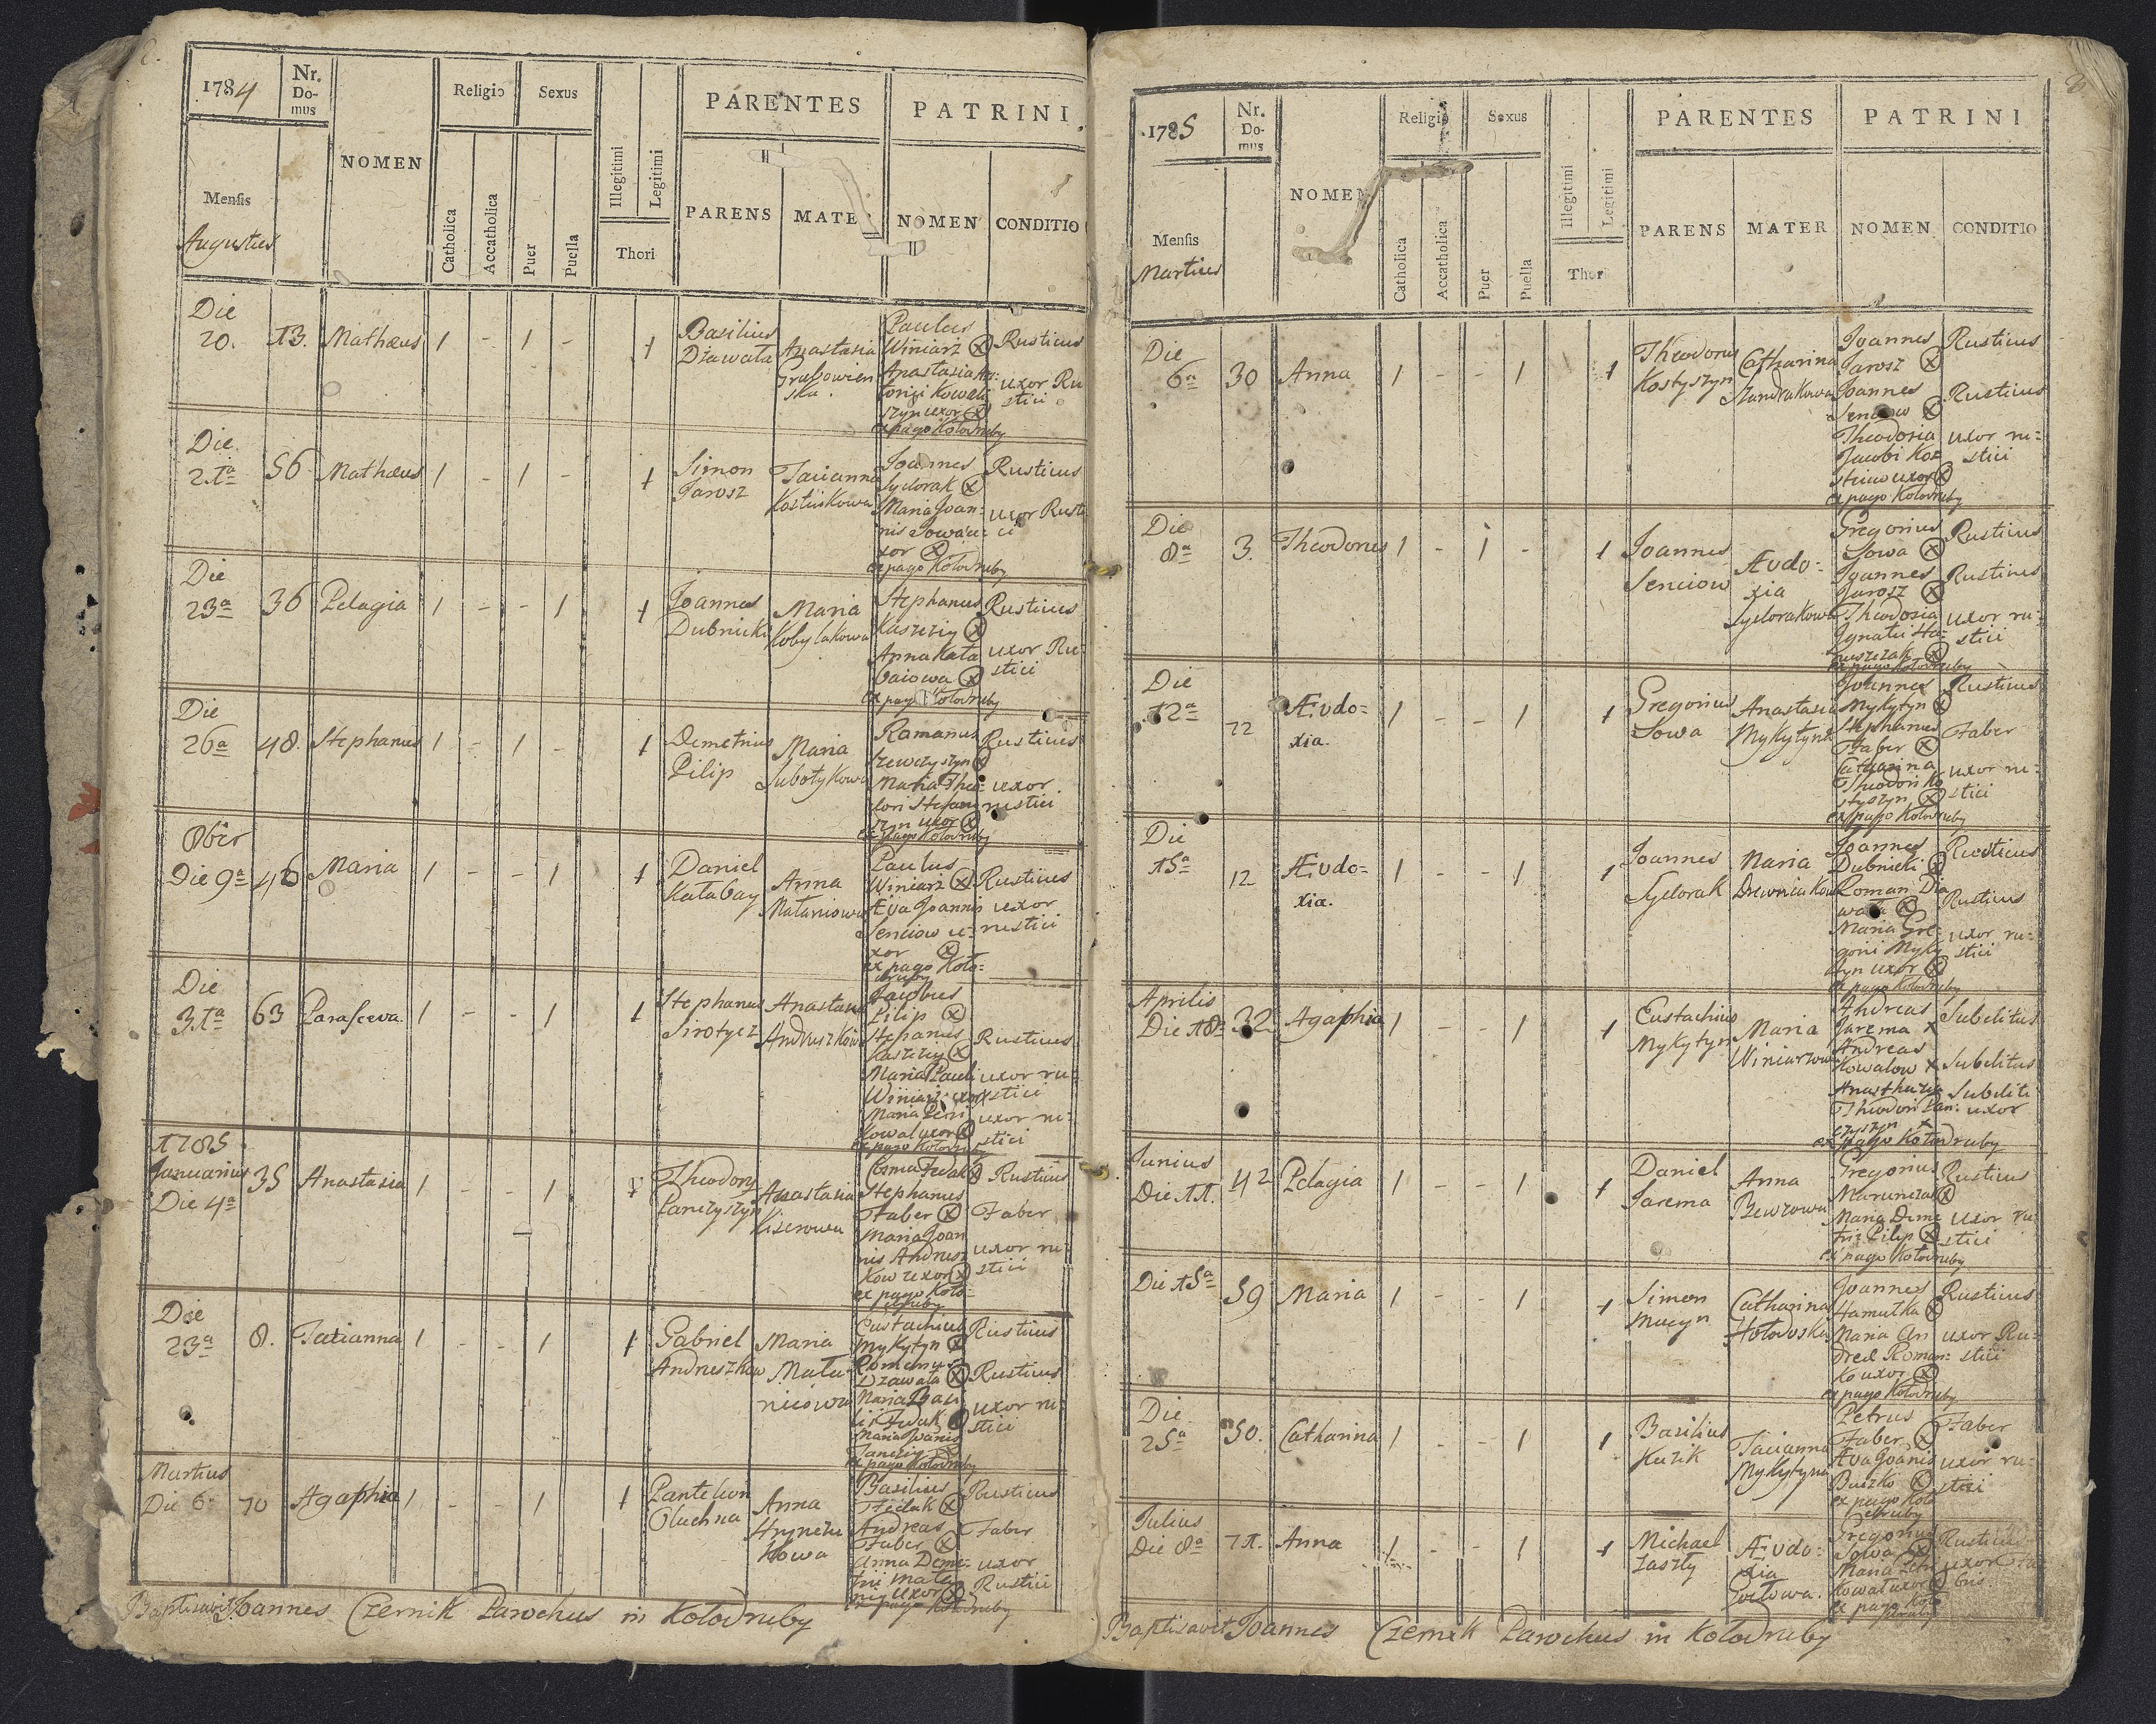 1784
Nr. Domus
NOMEN
Religio
Sexus
PARENTES
PATRINI
Mensis
Augustus
Catholica
Accatholica
Puer
Puella
Illegitimi
Legitimi
Thori
PARENS
MATER
NOMEN
CONDITIO
Die 20. 13. Mathæus 1 - 1 - 1
Basilius Dziawała
Anastasia
Paulus Winiarz ⓧ Rusticus
Anastasia
uxor ⓧ uxor Rustici
ex pago Kołodruby
Die 21a 56 Mathæus 1 - 1 - 1
Simon Jarosz
Tacianna Kostiukowa
Joannes Sydorak ⓧ Rusticus
Maria Joannis Sowa uxor ⓧ uxor Rustici
ex pago Kołodruby
Die 23a 36 Pelagia 1 - - 1 1
Joannes Dubnicki
Maria Kobylakowa
Stephanus Kaszczij ⓧ Rusticus
Anna Katabaiowa ⓧ uxor Rustici
ex pago Kołodruby
Die 26a 48. Stephanus 1 - 1 - 1
Demetrius Pilip
Maria Subotykowa
Romanus Szewczyszyn ⓧ Rusticus
Maria Theodori uxor ⓧ uxor rustici
ex pago Kołodruby
8bris
Die 9a 46 Maria 1 - - 1 1
Daniel Katabay
Anna
Paulus Winiarz ⓧ Rusticus
Æva Joannis Senciow uxor ⓧ uxor rustici
ex pago Kołodruby
Die 31a 63 Parasceva. 1 - - 1 1
Stephanus Sirotycz
Anastasia Andruszkowa
Jacobus Pilip ⓧ
Stephanus Kaszczij ⓧ Rusticus
Maria Pauli Winiarz uxor uxor rustici
Maria Petri Kowal uxor ⓧ uxor rustici
ex pago Kołodruby
1785
Januarius
Die 4a 35 Anastasia 1 - - 1 1
Theodory Panczyszyn
Anastasia
Cosma Fedak ⓧ Rusticus
Stephanus Faber ⓧ Faber
Maria Joannis Andruszkow uxor ⓧ uxor rustici
ex pago Kołodruby
Die 23a 8. Tatianna 1 - - 1 1
Gabriel Andruszkow
Maria
Eustachius Mykytyn ⓧ Rusticus
Romanus Dzawała ⓧ Rusticus
Maria Basilii Fedak uxor rustici
ex pago Kołodruby
Martius
Die 6a 70 Agaphia 1 - - 1 1
Panteleon Oluchna
Anna
Basilius Fedak ⓧ Rusticus
Andreas Faber ⓧ Faber
Anna Demetrii uxor ⓧ uxor Rustici
ex pago Kołodruby
Baptisavit Joannes Czernik Parochus in Kołodruby
1785
Nr. Domus
NOMEN
Religio
Sexus
PARENTES
PATRINI
Mensis
Martius
Catholica
Accatholica
Puer
Puella
Illegitimi
Legitimi
Thori
PARENS
MATER
NOMEN
CONDITIO
Die 6a 30 Anna 1 - - 1 1
Theodorus Kostyszyn
Catharina Szandrakowa
Joannes Jarosz ⓧ Rusticus
Joannes Senciow ⓧ Rusticus
Theodosia Jacobi uxor ⓧ uxor rustici
ex pago Kołodruby
Die 8a 3. Theodorus 1 - 1 - 1
Joannes Senciow
Ævdoxia Sydorakowa
Gregorius Sowa ⓧ Rusticus
Joannes Jarosz ⓧ Rusticus
Theodosia Ignatii ⓧ uxor rustici
ex pago Kołodruby
Die 12a 22 Ævdoxia. 1 - - 1 1
Gregorius Sowa
Anastasia Mykytyna
Joannes Mykytyn ⓧ Rusticus
Stephanus Faber ⓧ Faber
Catharina Theodori Kostyszyn ⓧ uxor rustici
ex pago Kołodruby
Die 15a 12 Ævdoxia. 1 - - 1 1
Joannes Sydorak
Maria
Joannes Dubnicki ⓧ Rusticus
Roman Dziawała ⓧ Rusticus
Maria Gregorii Mykytyn uxor ⓧ uxor rustici
ex pago Kołodruby
Aprilis
Die 18a 32 Agaphia 1 - - 1 1
Eustachius Mykytyn
Maria Winiarzowa
Andreas Jarema x Subditus
Andreas Kowalow x Subditus
Theodori Panczyszyn x Subditi uxor
ex pago Kołodruby
Junius
Die 11. 42 Pelagia 1 - - 1 1
Daniel Jarema
Anna
Gregorius ⓧ Rusticus
Maria Demetrii Pilip ⓧ uxor rustici
ex pago Kołodruby
Die 15a 59 Maria 1 - - 1 1
Simon
Catharina
Joannes Hamułka ⓧ Rusticus
Maria uxor ⓧ uxor Rustici
ex pago Kołodruby
Die 25a 50. Catharina 1 - - 1 1
Basilius Kuzik
Tacianna Mykytyna
Petrus Faber ⓧ Faber
Æva Joannis ⓧ uxor rustici
ex pago Kołodruby
Julius
Die 8a 71. Anna 1 - - 1 1
Michael Zaszły
Ævdoxia
Gregorius Sowa ⓧ Rusticus
Maria Petri Kowal uxor ⓧ uxor
ex pago Kołodruby
Baptisavit Joannes Czernik Parochus in Kołodruby